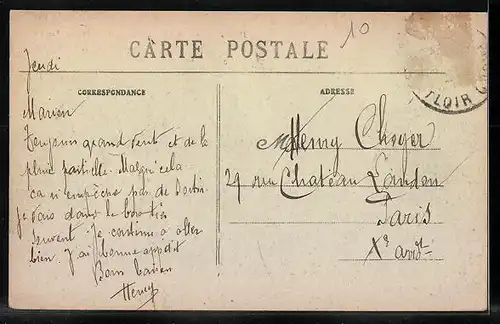 10
CARTE POSTALE
Jeudi
CORRESPONDANCE
ADRESSE
LOIR
Toujours grand vent et de la
pluie partielle. Malgré cela
ça n'empêche pas de sortir
je vais dans le bois très
souvent. Je continue à aller
bien. J'ai bonne appétit
Bons baisers
Henry
Henry
29 rue Chateau Landon
Paris
Xe arrdt